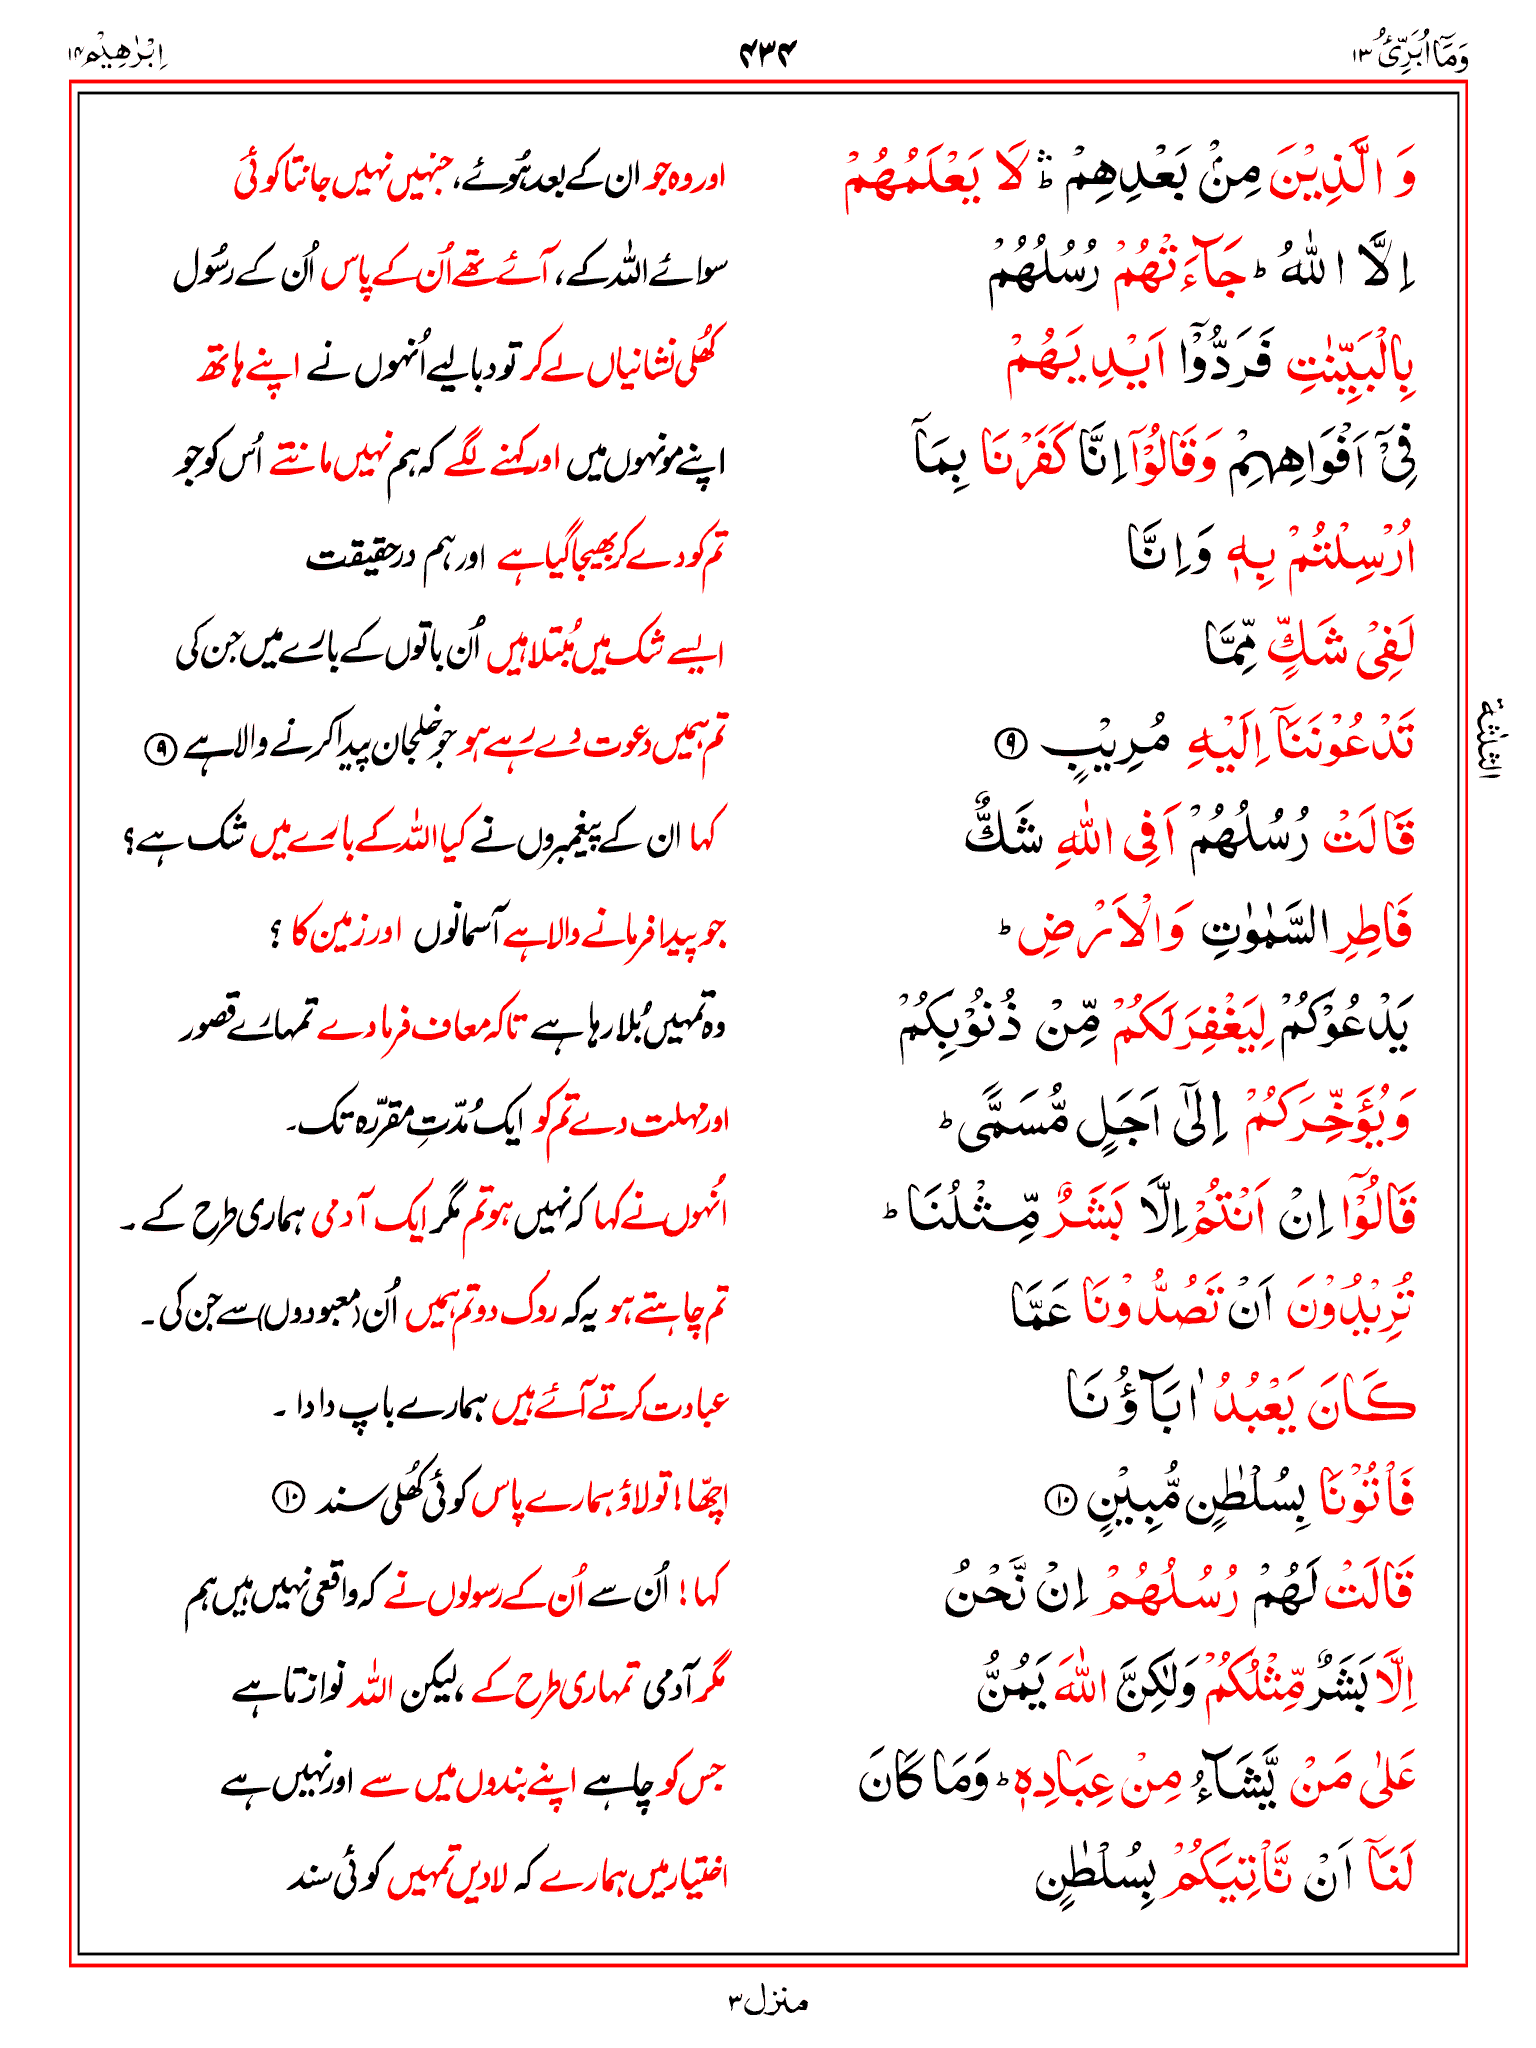 وَمَآ اُبَرِّئُ ۱۳ ۴۳۴ اِبْرٰهِيْم ۱۴
وَ الَّذِيْنَ مِنْۢ بَعْدِهِمْ ۛؕ لَا يَعْلَمُهُمْ اور وہ جو ان کے بعد ہُوئے، جنہیں نہیں جانتا کوئی
اِلَّا اللّٰهُ ؕ جَآءَتْهُمْ رُسُلُهُمْ سوائے اللہ کے، آئے تھے اُن کے پاس اُن کے رسُول
بِالْبَيِّنٰتِ فَرَدُّوْٓا اَيْدِيَهُمْ کُھلی نشانیاں لے کر تو دبا لیے اُنہوں نے اپنے ہاتھ
فِيْٓ اَفْوَاهِهِمْ وَقَالُوْٓا اِنَّا كَفَرْنَا بِمَآ اپنے مونہوں میں اور کہنے لگے کہ ہم نہیں مانتے اُس کو جو
اُرْسِلْتُمْ بِهٖ وَاِنَّا تم کو دے کر بھیجا گیا ہے اور ہم درحقیقت
لَفِيْ شَكٍّ مِّمَّا ایسے شک میں مُبتلا ہیں اُن باتوں کے بارے میں جن کی
تَدْعُوْنَنَآ اِلَيْهِ مُرِيْبٍ ۹ تم ہمیں دعوت دے رہے ہو جو خلجان پیدا کرنے والا ہے ۹
الثلٰثة
قَالَتْ رُسُلُهُمْ اَفِي اللّٰهِ شَكٌّ کہا ان کے پیغمبروں نے کیا اللہ کے بارے میں شک ہے؟
فَاطِرِ السَّمٰوٰتِ وَالْاَرْضِ ؕ جو پیدا فرمانے والا ہے آسمانوں اور زمین کا ؟
يَدْعُوْكُمْ لِيَغْفِرَ لَكُمْ مِّنْ ذُنُوْبِكُمْ وہ تمہیں بُلا رہا ہے تاکہ معاف فرما دے تمہارے قصور
وَيُؤَخِّرَكُمْ اِلٰٓى اَجَلٍ مُّسَمًّى ؕ اور مہلت دے تم کو ایک مُدّتِ مقرّرہ تک۔
قَالُوْٓا اِنْ اَنْتُمْ اِلَّا بَشَرٌ مِّثْلُنَا ؕ اُنہوں نے کہا کہ نہیں ہو تم مگر ایک آدمی ہماری طرح کے ۔
تُرِيْدُوْنَ اَنْ تَصُدُّوْنَا عَمَّا تم چاہتے ہو یہ کہ روک دو تم ہمیں اُن (معبودوں) سے جن کی ۔
كَانَ يَعْبُدُ اٰبَآؤُنَا عبادت کرتے آئے ہیں ہمارے باپ دادا ۔
فَاْتُوْنَا بِسُلْطٰنٍ مُّبِيْنٍ ۱۰ اچھّا! تو لاؤ ہمارے پاس کوئی کُھلی سند ۱۰
قَالَتْ لَهُمْ رُسُلُهُمْ اِنْ نَّحْنُ کہا! اُن سے اُن کے رسولوں نے کہ واقعی نہیں ہیں ہم
اِلَّا بَشَرٌ مِّثْلُكُمْ وَلٰكِنَّ اللّٰهَ يَمُنُّ مگر آدمی تمہاری طرح کے ،لیکن اللہ نوازتا ہے
عَلٰى مَنْ يَّشَآءُ مِنْ عِبَادِهٖ ؕ وَمَا كَانَ جس کو چاہے اپنے بندوں میں سے اور نہیں ہے
لَنَآ اَنْ نَّاْتِيَكُمْ بِسُلْطٰنٍ اختیار میں ہمارے کہ لا دیں تمہیں کوئی سند
منزل ۳